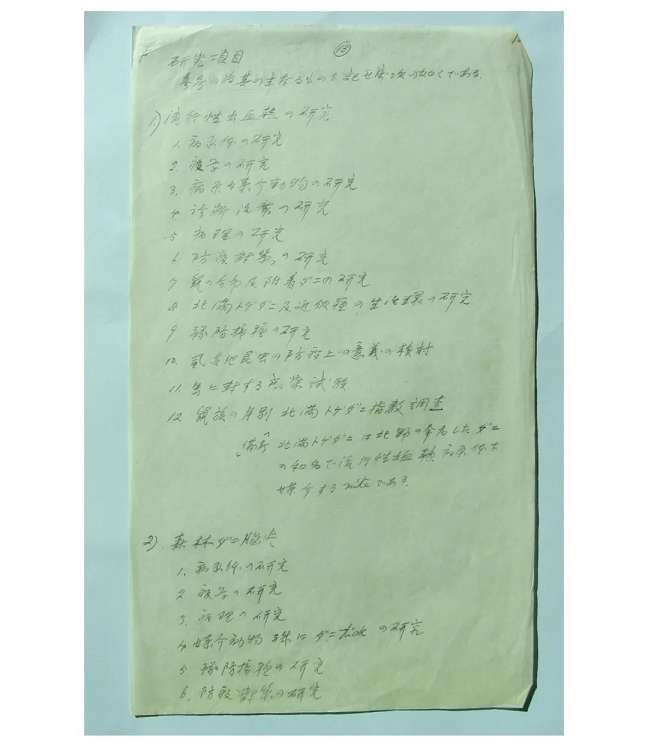 ⑬
研究項目
1) 流行性出血熱の研究
1. 病原体の研究
2. 疫学の研究
3. 病原媒介動物の研究
4. 診断治療の研究
5. 病理の研究
6. 防疫対策の研究
7. 鼠の分布及附着ダニの研究
8. 北満トゲダニ及近似種の生活環の研究
9. 予防接種の研究
10. 其他昆虫の防疫上の意義の検討
11. に対する感染試験
12. 鼠族の月別北満トゲダニ指数調査
備考 北満トゲダニは北野の命名したダニ
の和名で流行性出血熱病原体を
媒介するmiteである
2) 森林ダニ脳炎
1. 病原体の研究
2. 疫学の研究
3. 病理の研究
4. 媒介動物 特にダニ の研究
5. 予防接種の研究
6. 防疫対策の研究